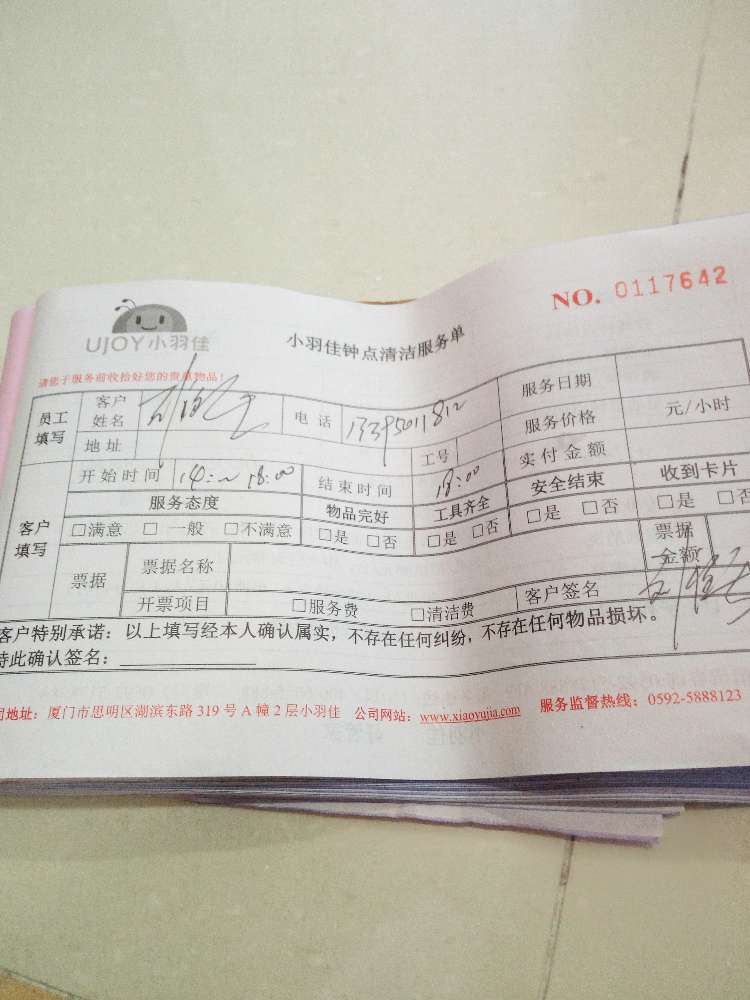 NO. 0117642
UJOY小羽佳
小羽佳钟点清洁服务单
请您于服务前收拾好您的贵重物品！
员工填写 客户姓名 电话 13395011812 服务日期
地址 工号 服务价格 元/小时
实付金额
客户填写 开始时间 14:~18:00 结束时间 18:00 安全结束 收到卡片
服务态度 物品完好 工具齐全 □是 □否 □是 □否
□满意 □一般 □不满意 □是 □否 □是 □否
票据 票据名称 票据金额
开票项目 □服务费 □清洁费 客户签名
客户特别承诺：以上填写经本人确认属实，不存在任何纠纷，不存在任何物品损坏。
特此确认签名：
司地址：厦门市思明区湖滨东路319号A幢2层小羽佳 公司网站：www.xiaoyujia.com 服务监督热线：0592-5888123